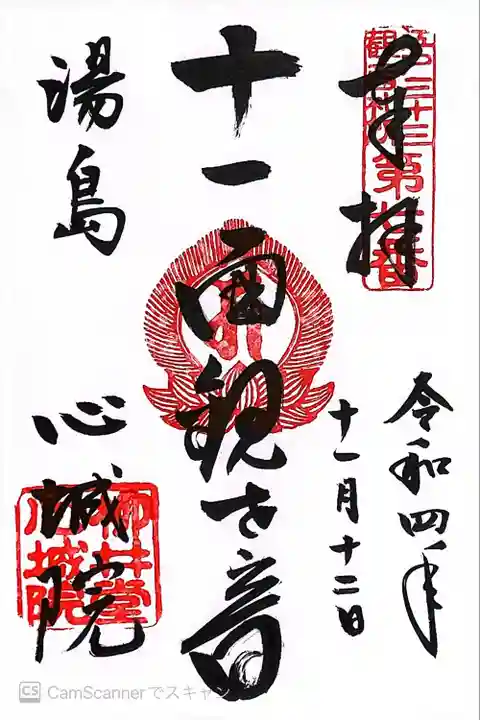 奉拝
令和四年
十一月十二日
十一面観世音
湯島
心城院
柳井堂
心城院
CS CamScannerでスキャン